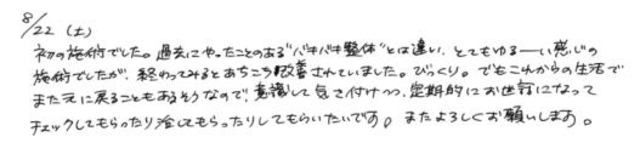 8/22（土）
初の施術でした。過去にやったことのある“バキバキ整体”とは違い、とてもゆるーい感じの
施術でしたが、終わってみるとあちこち改善されていました。びっくり。でもこれからの生活で
また元に戻ることもあるそうなので、意識して気を付けつつ、定期的にお世話になって
チェックしてもらったり治してもらったりしてもらいたいです。またよろしくお願いします。